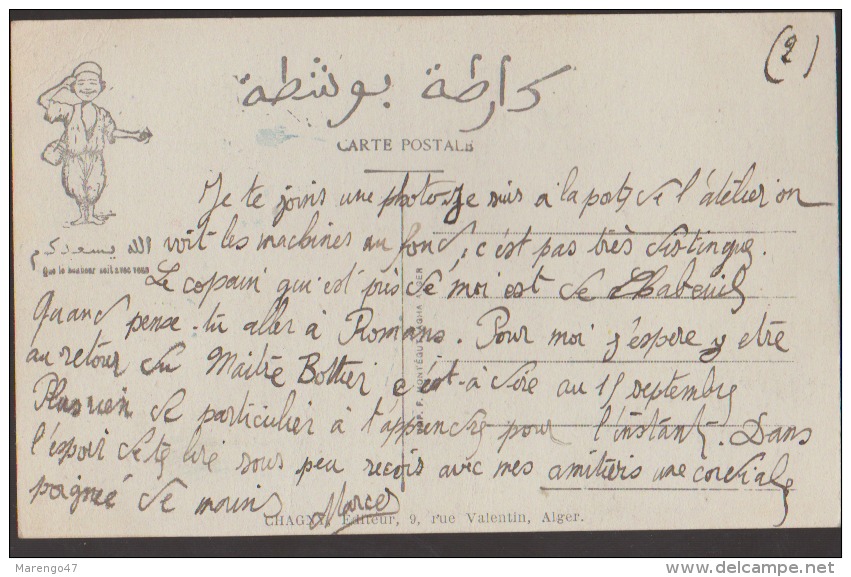 (2)
كارطة بوسطة
CARTE POSTALE
Je te joins une photo. Je suis a la porte de l'atelier on
voit les machines au fond, c'est pas très distingué.
الله يسعدكم
Que le bonheur soit avec vous
Le copain qui est près de moi est de Chabeuil
Quand pense-tu aller à Romans. Pour moi j'espere y etre
au retour du Maitre Bottier c'est-à dire au 15 septembre
Plus rien de particulier à t'apprendre pour l'instant. Dans
l'espoir de te lire sous peu recois avec mes amitiers une cordiale
poignée de mains Marcel
CHAGNY, Editeur, 9, rue Valentin, Alger.
Marengo47
delcampe.net